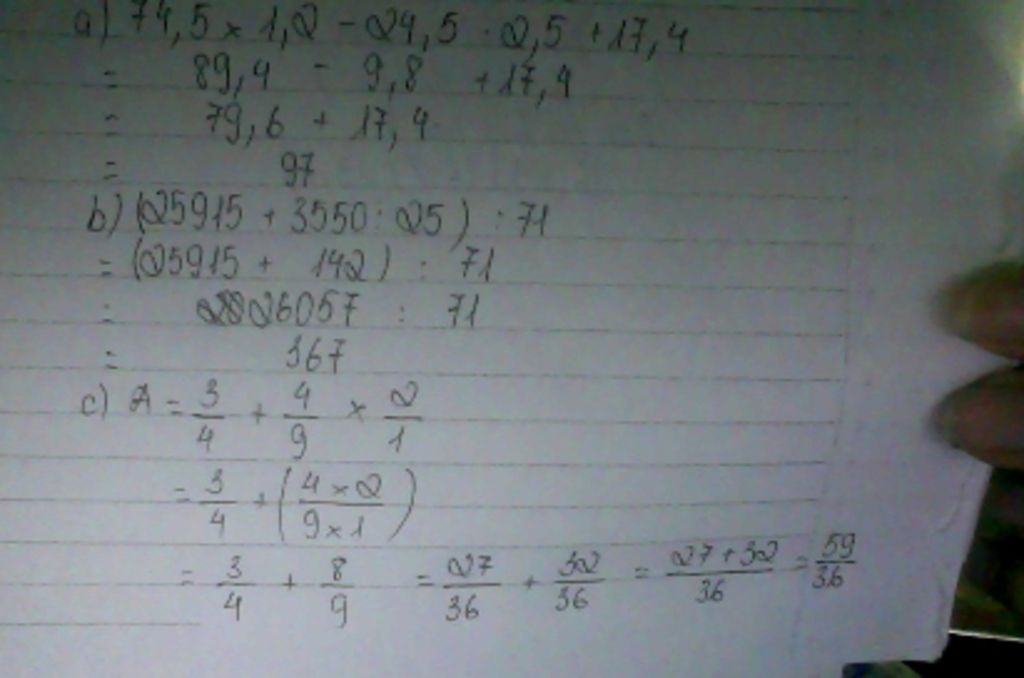 a) 74,5 × 1,2 - 24,5 : 2,5 + 17,4
= 89,4 - 9,8 + 17,4
= 79,6 + 17,4
= 97
b) (25915 + 3550 : 25) : 71
= (25915 + 142) : 71
= 26057 : 71
= 367
c) A = 3/4 + 4/9 × 2/1
= 3/4 + (4 × 2 / 9 × 1)
= 3/4 + 8/9 = 27/36 + 32/36 = 27 + 32 / 36 = 59/36